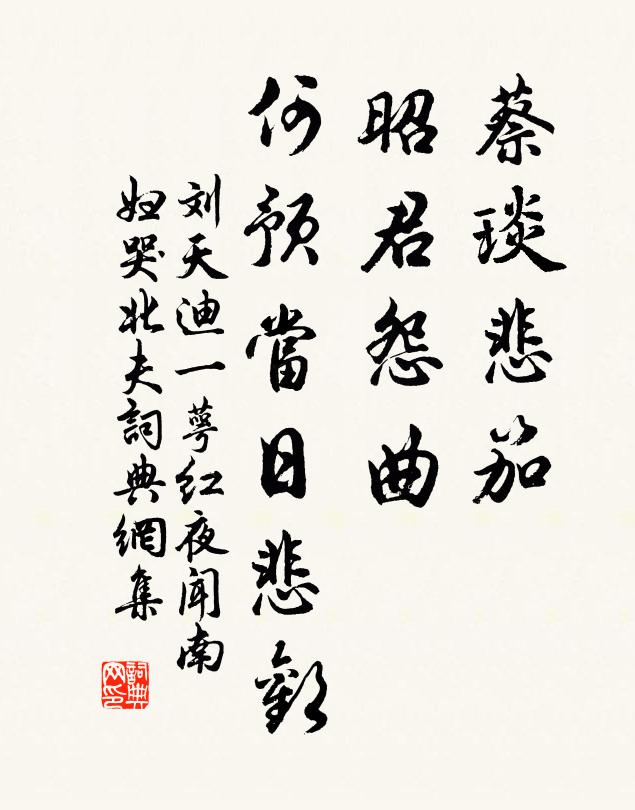 蔡琰悲笳
昭君怨曲
何預當日悲歡
刘天迪一萼红夜闻南
妇哭北夫詞典網集
詞典网印